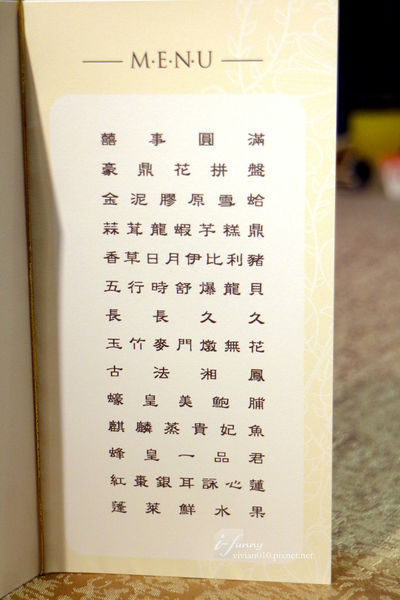 M·E·N·U
囍事圓滿
豪鼎花拼盤
金泥膠原雪蛤
蒜茸龍蝦芋糕鼎
香草日月伊比利豬
五行時舒爆龍貝
長長久久
玉竹麥門燉無花
古法湘鳳
蠔皇美鮑脯
麒麟蒸貴妃魚
蜂皇一品君
紅棗銀耳詠心蓮
蓬萊鮮水果
i-funny
vivian010.pixnet.net